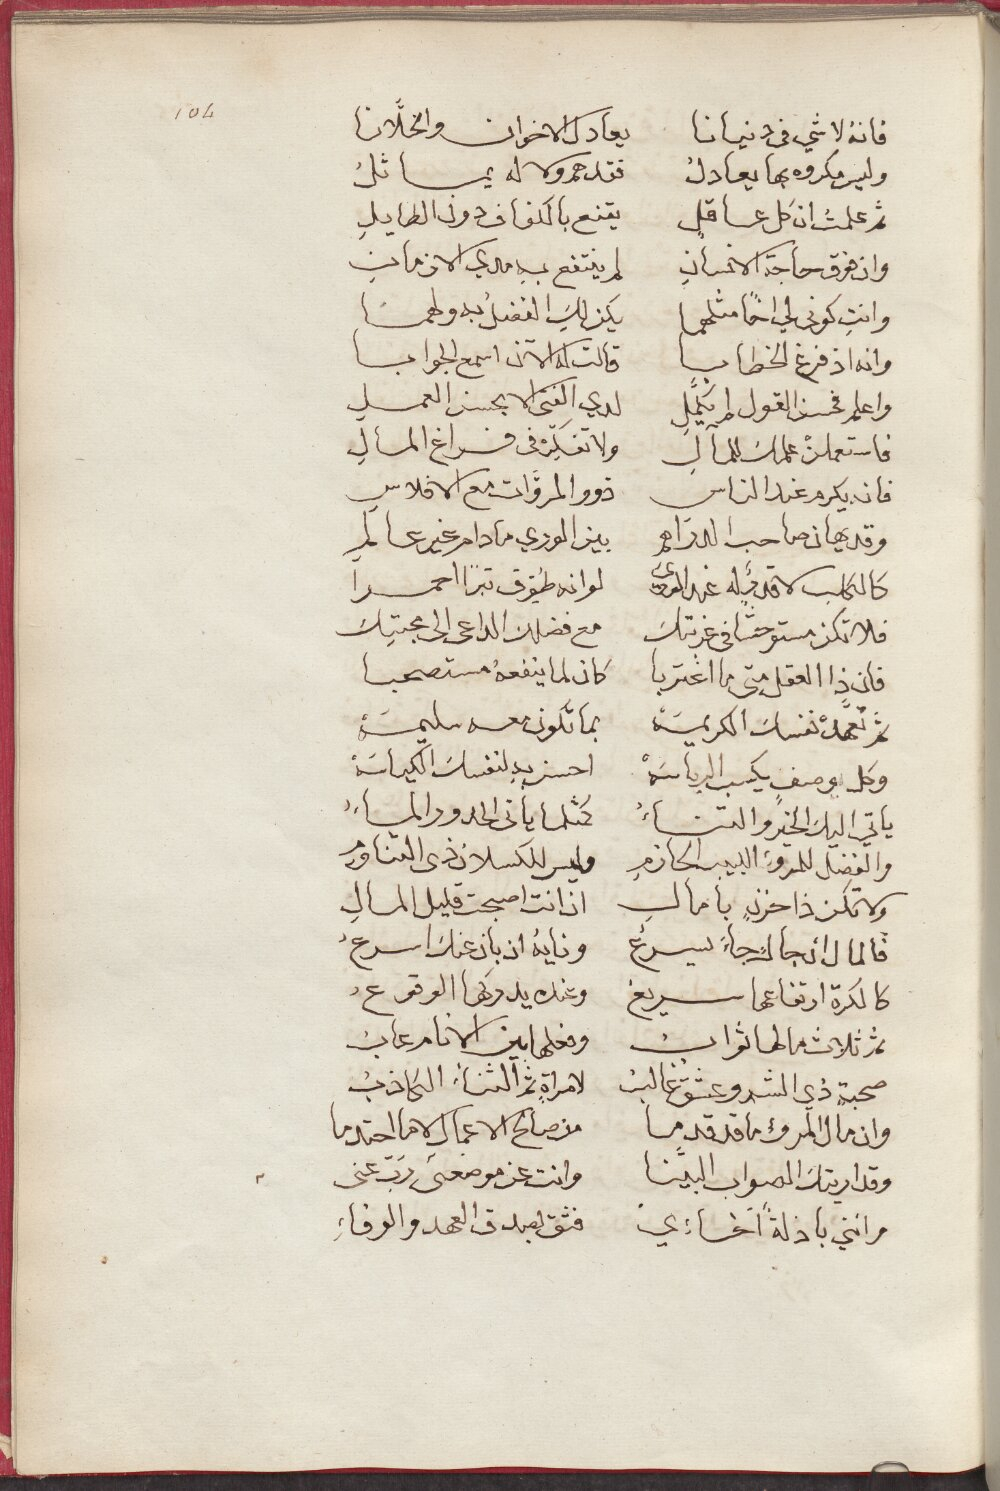 104
فانهُ لا شي في دنيانا يعادل الاخوان والخلَّانا
وليس مكروه بها يعادلُ فقدهم ولا له يماثلُ
ثم علمتُ ان كل عاقلٍ يقنع بالكفاف دون الطايلِ
وان فوق حاجة الانسانِ لم ينتفع بهِ مدي الازمانِ
وانتِ كوني لي اخًا مثلهما يكن لكِ الفضلُ بهِ ولهما
وانه اذ فرغ الخطابا قالت له الآن اسمع الجوابا
واعلم فحسن القول لم يكمَّلِ لدي الفتي الا بحسن العملِ
فاستعملنْ علمك للمآلِ ولا تفكِّرْ في فراغ المالِ
فانه يكرم عند الناس ذوو المروَّات مع الافلاسِ
وقد يهان صاحب الدراهم بين الوري ما دام غير عالمِ
كالكلب لا قدرٌ له عند الورى لو انه طُوِّق تبرًا احمرا
فلا تكن مستوحشًا في غربتك مع فضلك الداعي الي محبتِك
فان ذا العقل متي ما اغتربا كان لما ينفعهُ مستصحبا
ثم تعهَّدْ نفسك الكريمَهْ بما تكون معه سليمَهْ
وكل وصفٍ يكسب الرياسَهْ احسن بهِ لنفسك الكياسَهْ
ياتي اليك الخيرُ والثناءُ كمثلما ياتي الحدور الماءُ
والفضل للمروِ اللبيب الحازمِ وليس للكسلان ذي التناومِ
ولا تكن ذا حزنٍ بأمالِ اذ انت اصبحت قليل المالِ
فالمال ان جاكَ جاءَ يسرعُ ونايهُ ان بان عنك اسرعُ
كالكرة ارتفاعها سريعُ وعنده يدركها الوقوعُ
ثم ثلاث ما لها ثوابُ وفعلها بين الانام عابُ
صحبة ذي الشر وعشقٌ غالبُ لامراةٍ ثم الثناءُ الكاذبُ
وان مال المروِ ما قد قدما من صالح الاعمال لا ما احتدما
وقد اريتك الصواب البيّنا وانت عن موضعيَ ربّ غني
وانني باذلةٌ اخاءي فثق بصدق العهد والوفاءِ